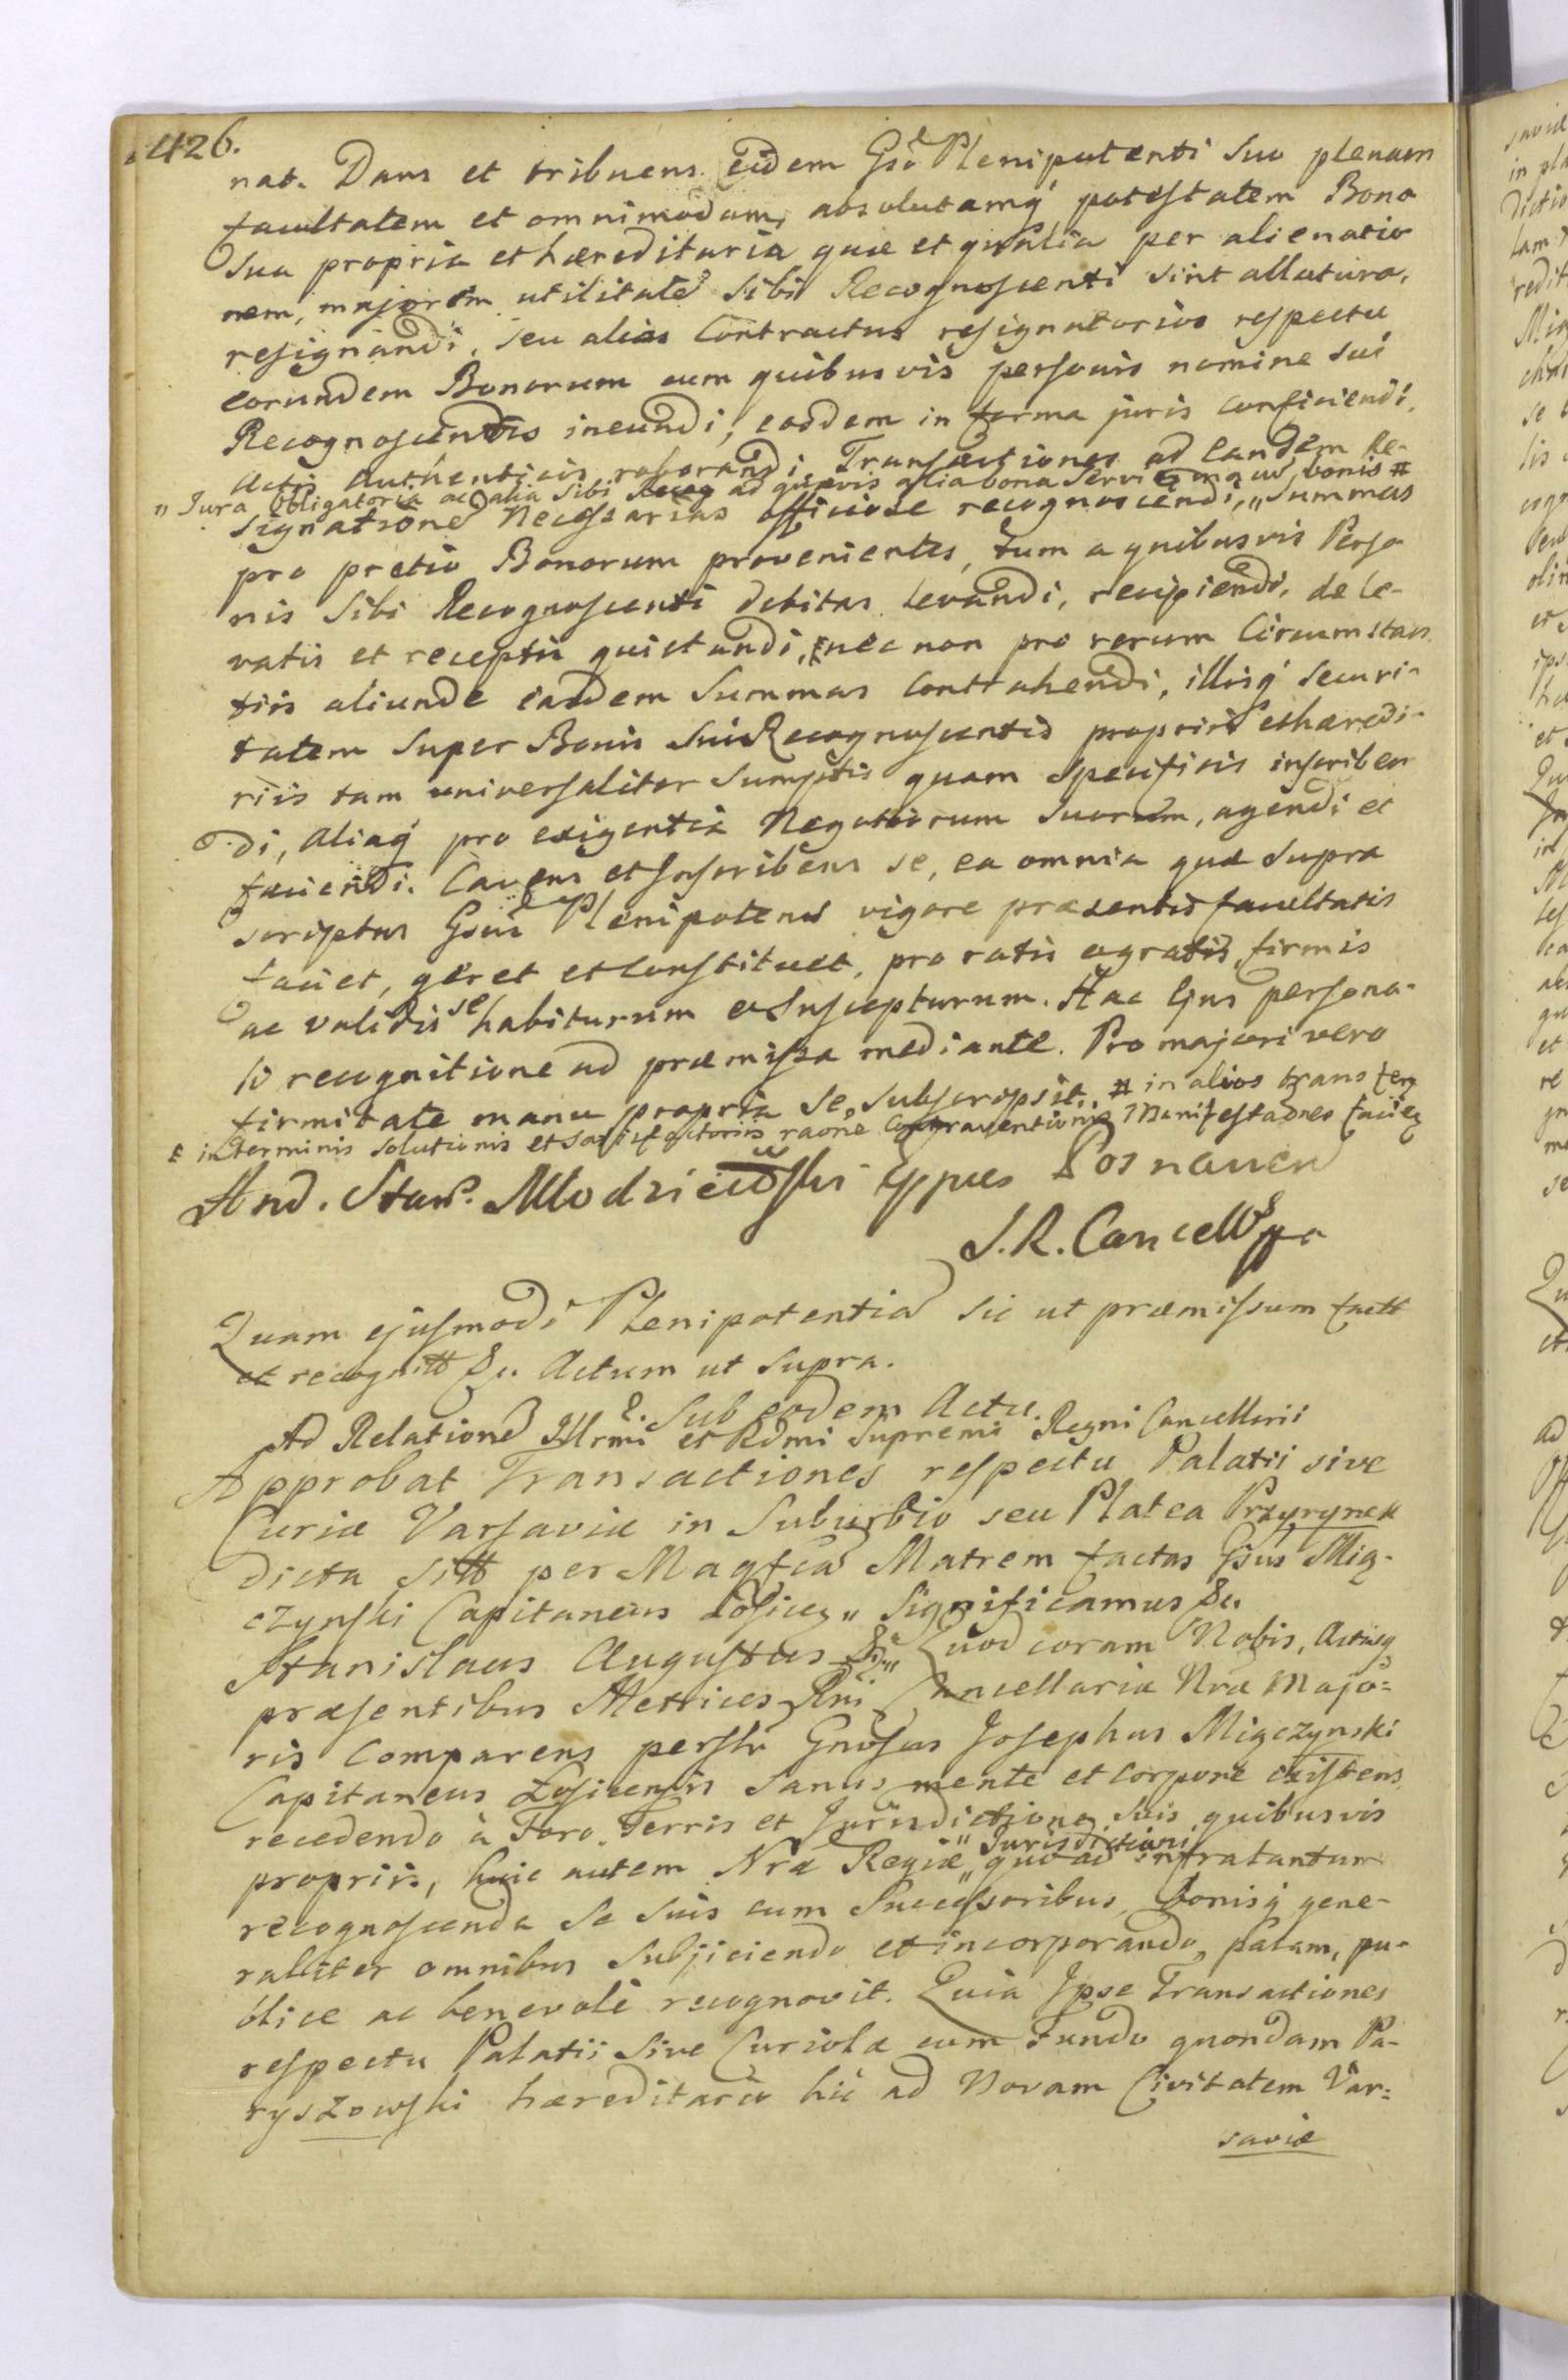 426.
nat. Dans et tribuens eidem Gso Plenipotenti suo plenam
facultatem et omnimodam, absolutamq́ potestatem Bona
sua propria et hæreditaria quæ et qualia per alienatio
nem, majorem utilitatẽ sibi Recognoscenti sint allatura,
resignandi, seu alias Contractus resignatorios respectu
eorundem Bonorum cum quibusvis personis nomine sui
Recognoscentis ineundi, eosdem in forma juris conficiendi,
Actis Authenticis roborandi, Transactiones ad eandem Re-
" Jura obligatoria ac alia sibi ad quævis alia bona bonis #
signationẽ necessarias officiose recognoscendi, " Summas
pro pretio Bonorum provenientes, tum a quibusvis Perso
nis sibi Recognoscenti debitas levandi, recipiendi, de le-
vatis et receptis quietandi, nec non pro rerum Circumstan
tiis aliunde easdem Summas contrahendi, illisq́ securi-
tatem super Bonis sui Recognoscentis propriis et hæredi-
riis tam universaliter sumptis quam specificis inscriben
di, aliaq́ pro exigentia Negotiorum suorum, agendi et
faciendi. Cavens et Inscribens se, ea omnia quæ supra
scriptus Gsus Plenipotens vigore præsentis facultatis
faciet, geret et constituet, pro ratis ac gratis, firmis
ac validis se habiturum et suscepturum. Hac Ejus persona-
li recognitione ad præmissa mediante. Pro majori vero
firmitate manu propria se subscripsit. # in alios transfer
in terminis solutionis et satisfactoriis raone Contraventionis Manifestaones
And. Stan. Młodzieiowski Eppus Posnanien
S. R. Cancell
Quam ejusmodi Plenipotentiã sic ut præmissum
et recognitt &c. Actum ut supra.
Sub eodem Actu.
Ad Relationẽ Illrmi et Rdmi Supremi Regni Cancellarii
Approbat Transactiones respectu Palatii sive
Curiæ Varsaviæ in Suburbio seu Platea Przyrynek
dicta sitt per Magfcã Matrem factas Gsus Mią-
czynski Capitaneus Łosicen " Significamus &c.
Stanislaus Augustus &c. " Quod coram Nobis, Actisq
præsentibus Metrices Rni Cancellariæ Nræ Majo-
ris comparens perslr Gnosus Josephus Miączynski
Capitaneus Łosicensis sanus mente et corpore existens,
recedendo à Foro, Terris et Jurisdictione suis quibusvis
Jurisdictioni
propriis, huic autem Nræ Regiæ " quo ad infratantum
recognoscenda se suis cum Successoribus, bonisq́ gene-
raliter omnibus subjiciendo et incorporando, palam, pu-
blice ac benevolè recognovit. Quia Ipse Transactiones
respectu Palatii sive Curiolæ cum fundo quondam Pa-
ryszowski hæreditario hic ad Novam Civitatem Var-
saviæ